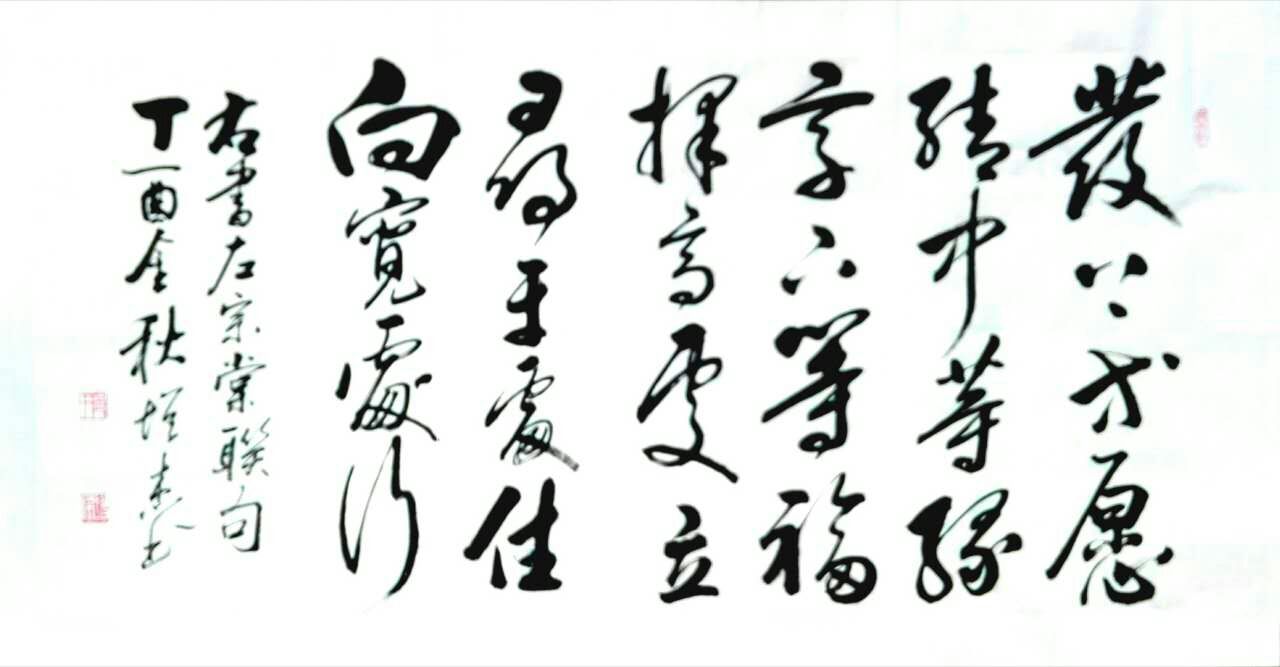 發上等愿
結中等緣
享下等福
擇高處立
尋平處住
向寬處行
右書左宗棠聯句
丁酉金秋